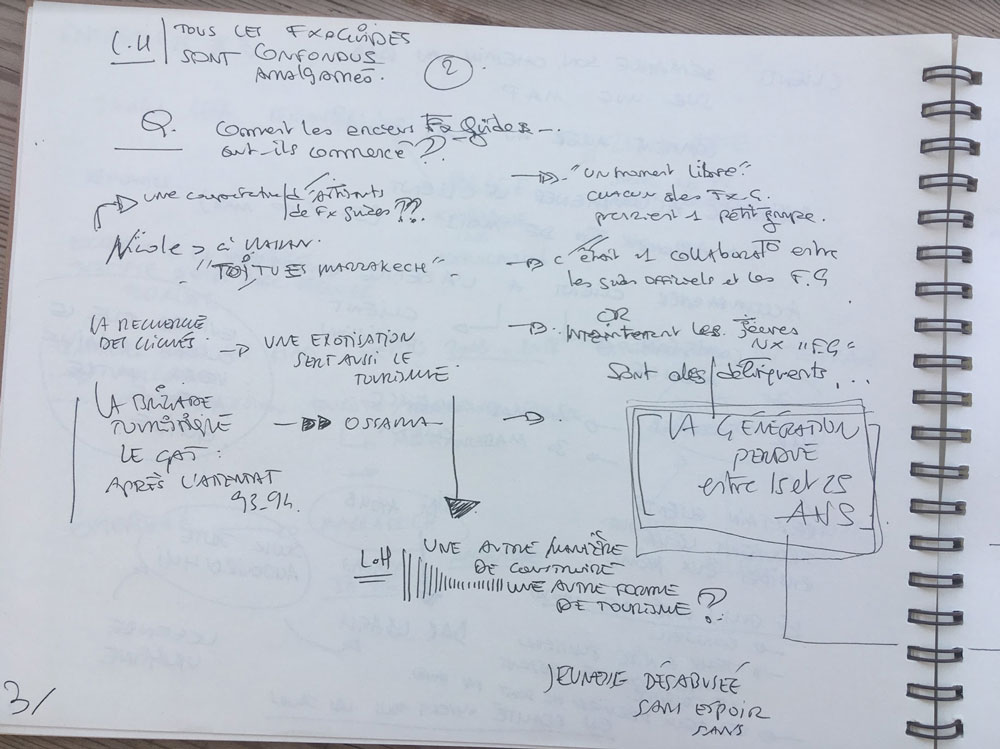 L.H | TOUS LES FXGUIDES
SONT CONFONDUS
AMALGAMÉS.
2
Q. Comment les anciens Fx Guides
ont-ils commencé ?
une
d'
de Fx guides ??
Nicole > à
"TOI TU ES MARRAKECH"
"un moment libre"
chacun des Fx.G.
prenaient 1 petit groupe.
c'était 1 collaborat° entre
les guides officiels et les F.G
OR
maintenant les jeunes
NX "F.G"
Sont des délinquants, ...
LA RECHERCHE
DES CLICHÉS.
UNE EXOTISATION
SERT AUSSI LE
TOURISME.
LA BRIGADE
TOURISTIQUE
LE GAT :
APRÈS L'ATTENTAT
93-94.
OSSAMA
LA GÉNÉRATION
PERDUE
entre 15 et 25
ANS
L.H
UNE AUTRE MANIÈRE
DE CONSTRUIRE
UNE AUTRE FORME
DE TOURISME ?
JEUNESSE DÉSABUSÉE
SANS ESPOIR
SANS
3/